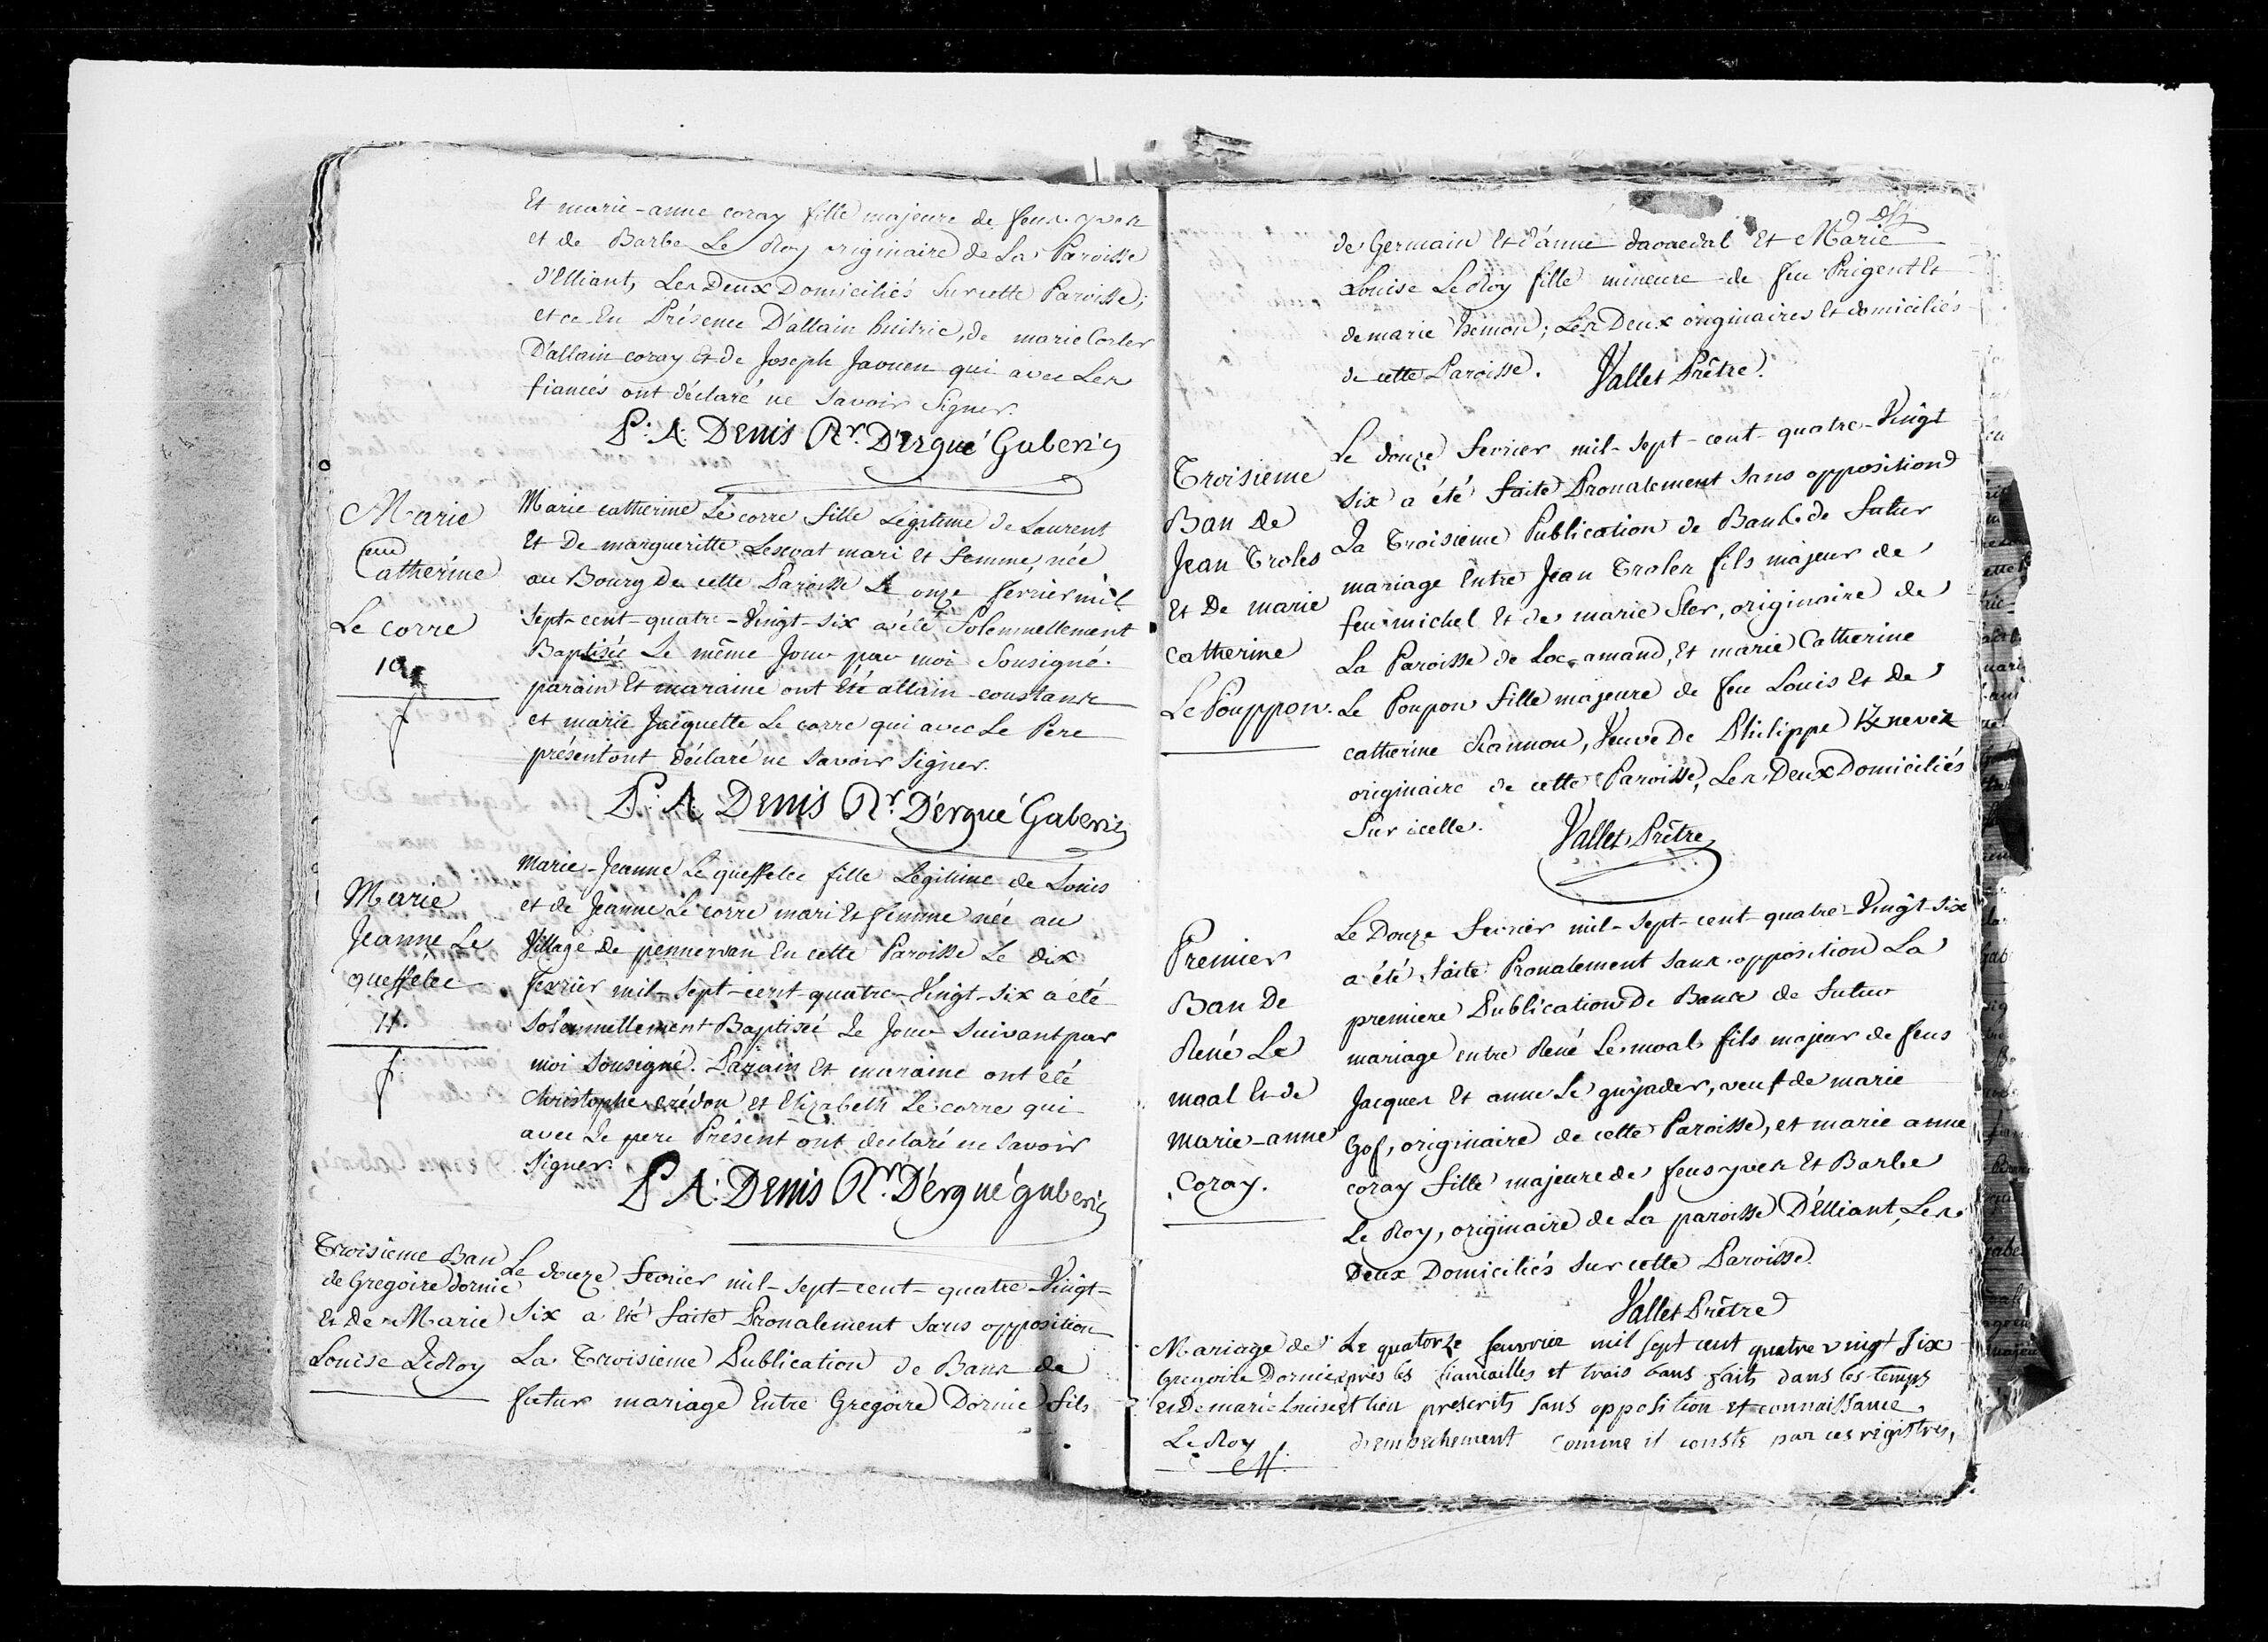 Et marie-anne coray fille majeure de feus yves
et de Barbe Le Roy originaire de La Paroisse
d'Elliant, Les Deux Domiciliés sur cette Paroisse;
et ce En Présence D'allain huitric, de marie
D'allain coray et de Joseph Jaouen qui avec Les
fiancés ont déclaré ne savoir signer.
P. A. Denis Rr. D'Ergué Gaberic
Marie
Catherine
Le corre
10
Marie catherine Le corre fille Légitime de Laurent
Et De margueritte Lescoat mari et femme, née
au Bourg de cette Paroisse Le onze fevrier mil
sept-cent-quatre-Vingt-six a été Solemnellement
Baptisée Le même Jour par moi Sousigné.
parain Et maraine ont Eté allain constans
et marie Jacquette Le corre qui avec Le Pere
présent ont déclaré ne savoir signer.
P. A. Denis Rr. D'Ergué Gaberic
Marie
Jeanne Le
queffelec
11.
Marie-Jeanne Le queffelec fille Légitime de Louis
et de Jeanne Le corre mari Et femme née au
Village De pennervan En cette Paroisse Le dix
fevrier mil-sept-cent-quatre-Vingt-six a été
Solemnellement Baptiseé Le Jour Suivant par
moi Sousigné. Parain Et maraine ont été
christophe crédou et Elizabeth Le corre qui
avec Le pere Présent ont declaré ne savoir
signer.
P. A. Denis Rr. D'ergué gaberic
Troisieme Ban
de Gregoire dornic
Et De Marie
Louise LeRoy
Le douze fevrier mil-sept-cent-quatre-Vingt-
six a Eté faite Pronalement sans opposition
La Troisieme Publication de Bans de
futur mariage Entre Gregoire Dornic fils
de Germain Et d'anne Et Marie
Louise LeRoy fille mineure de feu Prigent Et
de marie hémon; Les Deux originaires Et domiciliés
de cette Paroisse. Vallet Prêtre.
Troisieme
Ban de
Jean Troles
Et De marie
catherine
Le Pouppon.
Le douze fevrier mil-sept-cent-quatre-Vingt
six a été faite Pronalement sans opposition
La Troisieme Publication de Bans de futur
mariage Entre Jean Troles fils majeur de
feu michel Et de marie Ster, originaire de
La Paroisse de Loc-amand, Et marie Catherine
Le Poupon fille majeure de feu Louis Et De
catherine Rannou, Veuve De Philippe
originaire de cette Paroisse, Les Deux Domiciliés
Sur icelle. Vallet Prêtre
Premier
Ban De
René Le
moal Et de
Marie-anne
Coray.
Le Douze fevrier mil-sept-cent-quatre-Vingt-six
a été faite Pronalement sans opposition La
premiere Publication De Bans de futur
mariage entre René Le moal fils majeur de feus
Jacques Et anne Le guyader, veuf de marie
Gof, originaire de cette Paroisse, et marie anne
coray fille majeure de feus yves Et Barbe
Le Roy, originaire de La paroisse D'Elliant, Les
Deux Domiciliés sur cette Paroisse.
Vallet Prêtre
Mariage de
Gregoire Dornic
Et De marie Louise
Le Roy
Le quatorze feuvrier mil sept cent quatre vingt six
après les fiancailles et trois bans faits dans les temps
et lieu prescrits sans opposition et connaissance
d'empechement comme il conste par ces régistres,